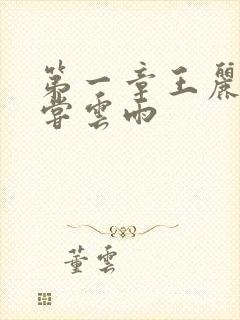 第一章王麗
嘗雲雨
董雲